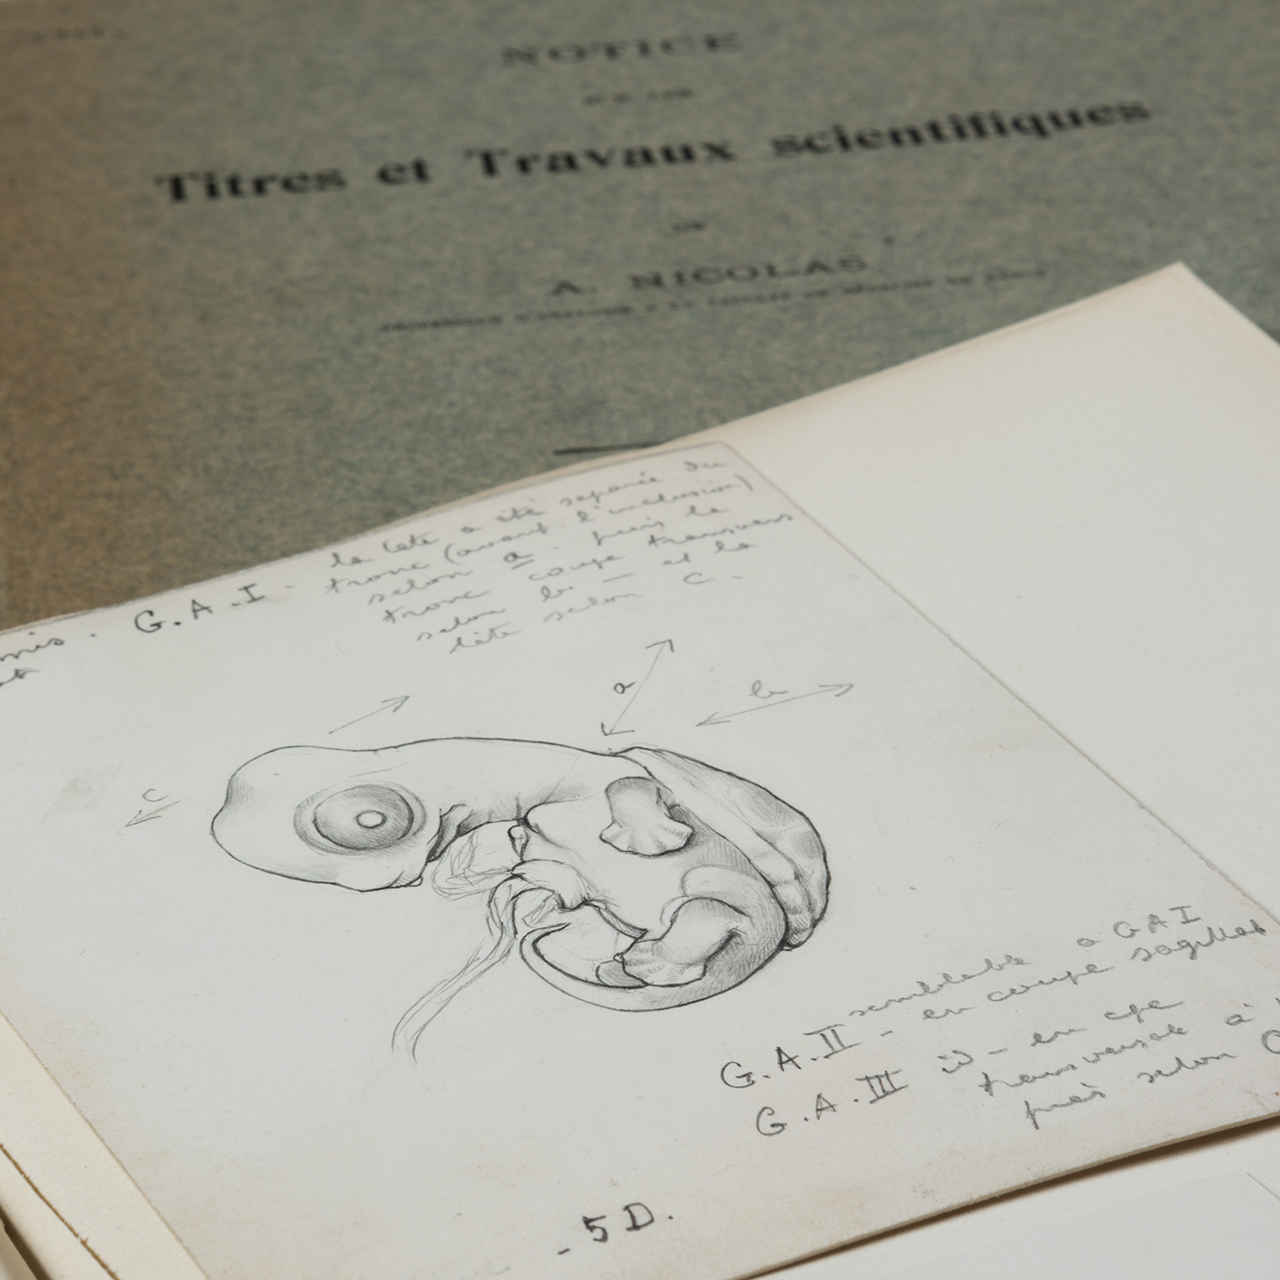 NOTICE
SUR LES
Titres et Travaux scientifiques
DE
A. NICOLAS
PROFESSEUR D'ANATOMIE A LA FACULTÉ DE MÉDECINE DE
G.A.I - la tête a été séparée du
tronc (avant l'inclusion)
selon a. puis le
tronc coupé transvers
selon b - et la
tête selon c.
a
b
c
G.A.II semblable à GAI
- en coupe sagittal
G.A.III id - en cpe
transversale à
près selon C
- 5 D.